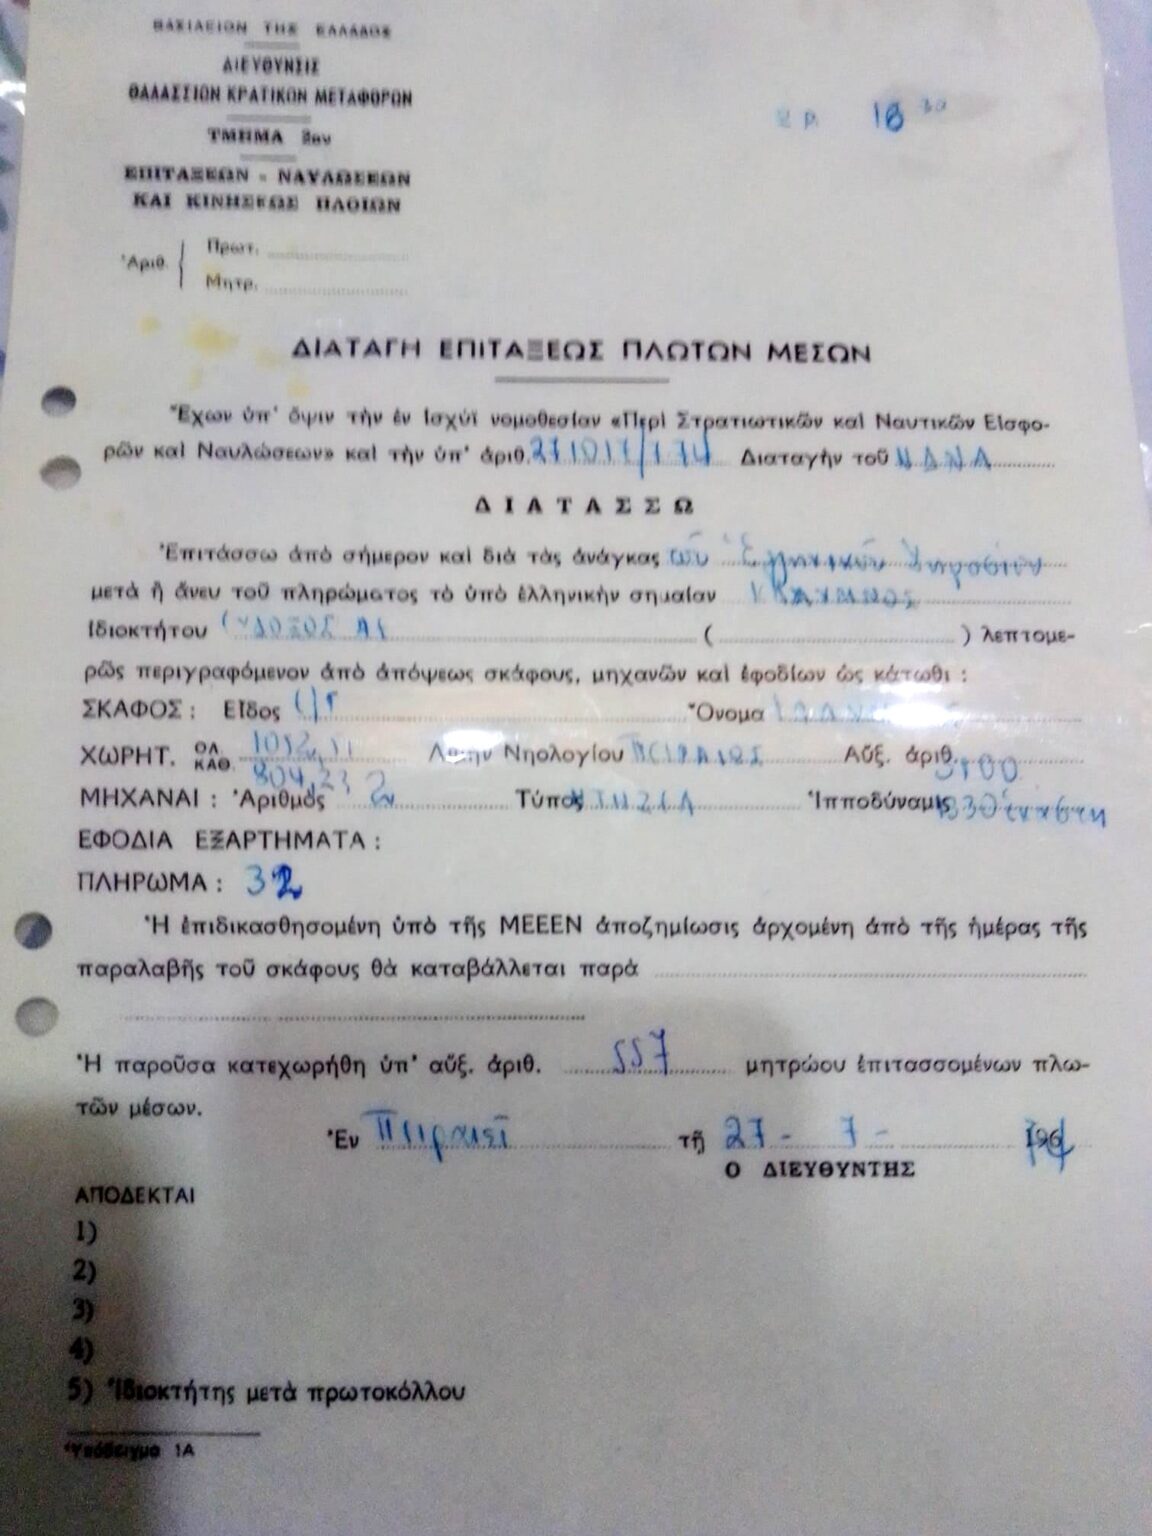 ΒΑΣΙΛΕΙΟΝ ΤΗΣ ΕΛΛΑΔΟΣ
ΔΙΕΥΘΥΝΣΙΣ
ΘΑΛΑΣΣΙΩΝ ΚΡΑΤΙΚΩΝ ΜΕΤΑΦΟΡΩΝ
ΤΜΗΜΑ 2ον
ΕΠΙΤΑΞΕΩΝ - ΝΑΥΛΩΣΕΩΝ
ΚΑΙ ΚΙΝΗΣΕΩΣ ΠΛΟΙΩΝ
18 30
Ἀριθ. Πρωτ.
Μητρ.
ΔΙΑΤΑΓΗ ΕΠΙΤΑΞΕΩΣ ΠΛΩΤΩΝ ΜΕΣΩΝ
Ἔχων ὑπ' ὄψιν τὴν ἐν ἰσχύϊ νομοθεσίαν «Περὶ Στρατιωτικῶν καὶ Ναυτικῶν Εἰσφο-
ρῶν καὶ Ναυλώσεων» καὶ τὴν ὑπ' ἀριθ. Διαταγὴν τοῦ
ΔΙΑΤΑΣΣΩ
Ἐπιτάσσω ἀπὸ σήμερον καὶ διὰ τὰς ἀνάγκας τοῦ Ἑλληνικοῦ Δημοσίου
μετὰ ἢ ἄνευ τοῦ πληρώματος τὸ ὑπὸ ἑλληνικὴν σημαίαν
ἰδιοκτήτου ( ) λεπτομε-
ρῶς περιγραφόμενον ἀπὸ ἀπόψεως σκάφους, μηχανῶν καὶ ἐφοδίων ὡς κάτωθι :
ΣΚΑΦΟΣ : Εἶδος Ὄνομα
ΧΩΡΗΤ. ΟΛ. ΚΑΘ. Λιμὴν Νηολογίου ΠΕΙΡΑΙΩΣ Αὔξ. ἀριθ.
804,23
ΜΗΧΑΝΑΙ : Ἀριθμὸς 2 Τύπος ΝΤΗΖΕΛ Ἱπποδύναμις 1330 ἑκάστη
ΕΦΟΔΙΑ ΕΞΑΡΤΗΜΑΤΑ :
ΠΛΗΡΩΜΑ : 32
Ἡ ἐπιδικασθησομένη ὑπὸ τῆς ΜΕΕΕΝ ἀποζημίωσις ἀρχομένη ἀπὸ τῆς ἡμέρας τῆς
παραλαβῆς τοῦ σκάφους θὰ καταβάλλεται παρὰ
Ἡ παροῦσα κατεχωρήθη ὑπ' αὔξ. ἀριθ. 557 μητρώου ἐπιτασσομένων πλω-
τῶν μέσων.
Ἐν Πειραιεῖ τῇ 27 - 7 - 196
Ο ΔΙΕΥΘΥΝΤΗΣ
ΑΠΟΔΕΚΤΑΙ
1)
2)
3)
4)
5) Ἰδιοκτήτης μετὰ πρωτοκόλλου
Ὑπόδειγμα 1Α